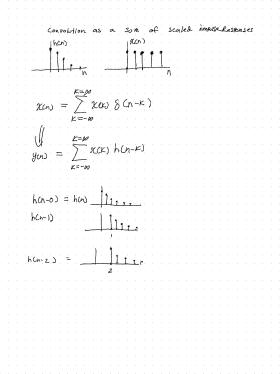 Convolution as a sum of scaled impulse responses
h(n) x(n)
n n
x(n) = Σ x(k) δ(n-k)
k=∞
k=-∞
⇓
y(n) = Σ x(k) h(n-k)
k=∞
k=-∞
h(n-0) = h(n)
h(n-1)
1
h(n-2) =
2